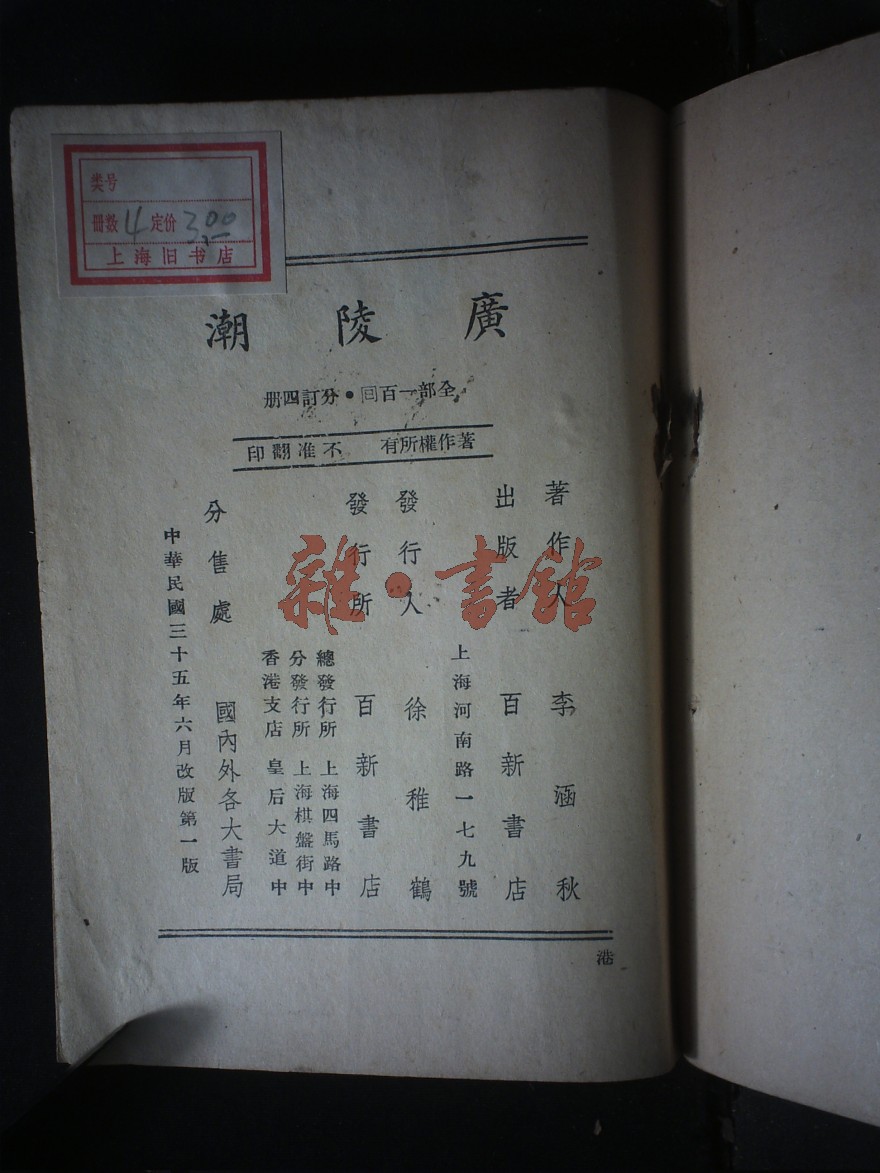 类号
册数 4 定价 3.00
上海旧书店
廣陵潮
全部一百回·分訂四册
著作權所有 不准翻印
著作人 李涵秋
出版者 百新書店
上海河南路一七九號
發行人 徐稚鶴
發行所 百新書店
總發行所 上海四馬路中
分發行所 上海棋盤街中
香港支店 皇后大道中
分售處 國內外各大書局
中華民國三十五年六月改版第一版
港
雜·書館